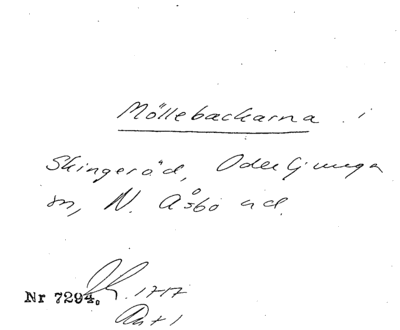 Möllebackarna i
Skingeröd, Oderljunga
sn, N. Åsbo hd.
Nr 7294.
Akt 1